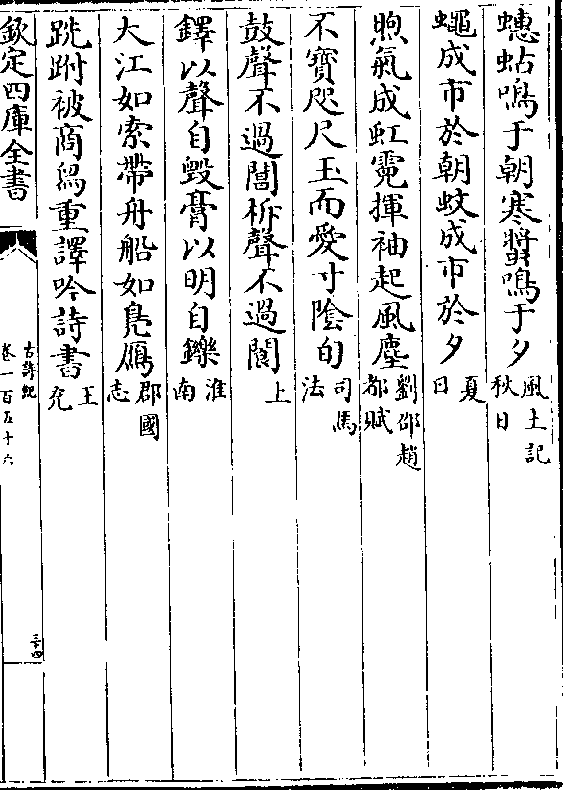 蟪蛄鳴于朝寒螿鳴于夕風土記秋日
蠅成市於朝蚊成市於夕夏日
煦氣成虹霓揮袖起風塵劉邵趙都賦
不寳咫尺玉而愛寸隂旬司馬法
鼓聲不過閶柝聲不過閬上
鐸以聲自毀膏以明自鑠淮南
大江如索帶舟船如鳬鴈郡國志
跣跗被商舄重譯吟詩書王充
欽定四庫全書
古詩紀
卷一百五十六
三十四